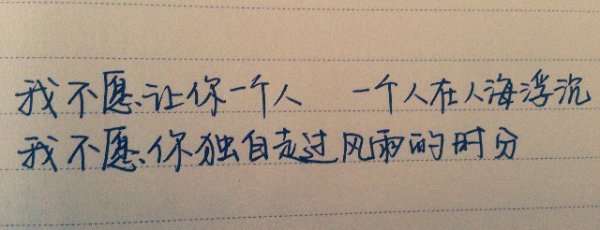 我不愿让你一个人 一个人在人海浮沉
我不愿你独自走过风雨的时分